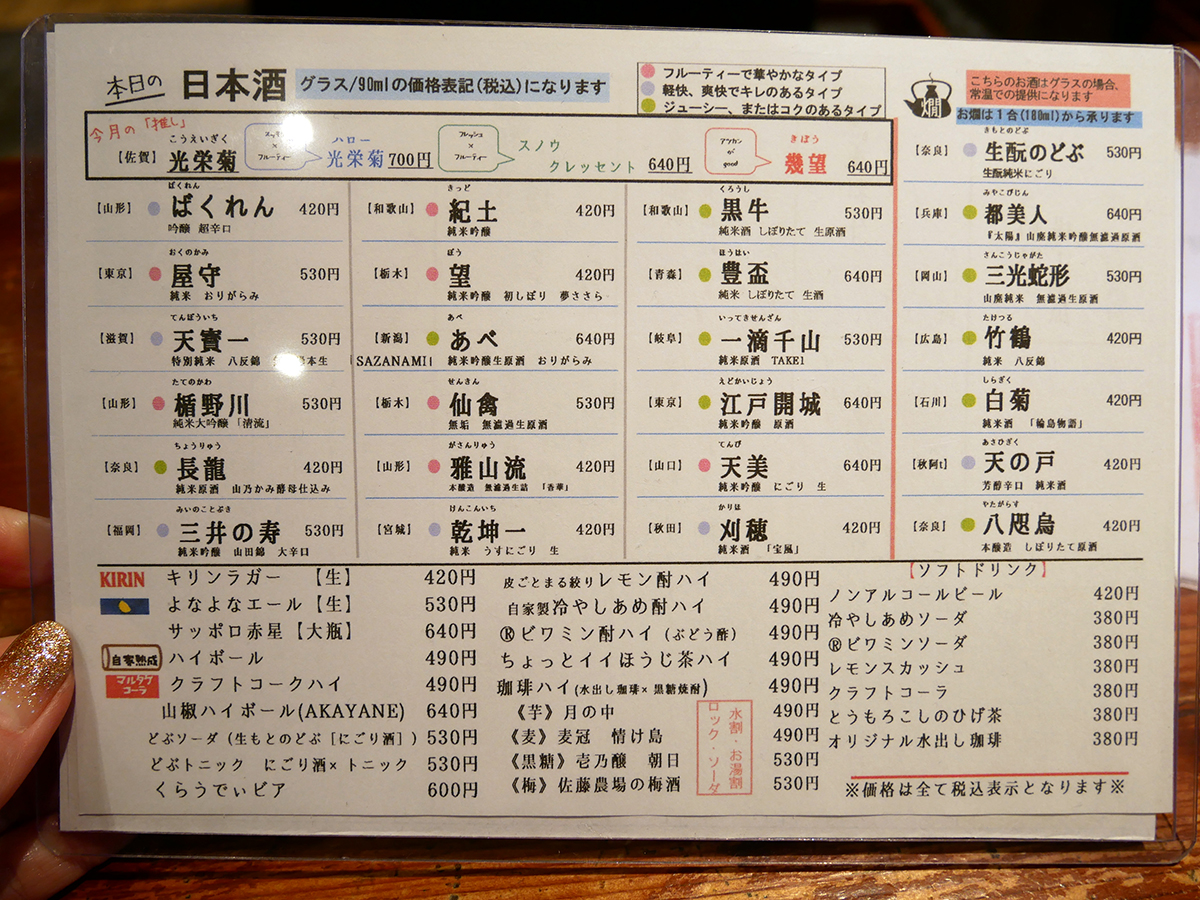 本日の 日本酒 グラス/90mlの価格表記(税込)になります
フルーティーで華やかなタイプ
軽快、爽快でキレのあるタイプ
ジューシー、またはコクのあるタイプ
燗
こちらのお酒はグラスの場合、
常温での提供になります
お燗は1合(180ml)から承ります
今月の「推し」
こうえいぎく
【佐賀】 光栄菊
スッキリ
×
フルーティー
ハロー
光栄菊 700円
フレッシュ
×
フルーティー
スノウ
クレッセント 640円
アツカン
が
good
きぼう
幾望 640円
ばくれん
【山形】 ばくれん 420円
吟醸 超辛口
おくのかみ
【東京】 屋守 530円
純米 おりがらみ
てんぽういち
【滋賀】 天寳一 530円
特別純米 八反錦 本生
たてのかわ
【山形】 楯野川 530円
純米大吟醸「清流」
ちょうりゅう
【奈良】 長龍 420円
純米原酒 山乃かみ酵母仕込み
みいのことぶき
【福岡】 三井の寿 530円
純米吟醸 山田錦 大辛口
きっど
【和歌山】 紀土 420円
純米吟醸
ぼう
【栃木】 望 420円
純米吟醸 初しぼり 夢ささら
あべ
【新潟】 あべ 640円
「SAZANAMI」 純米吟醸生原酒 おりがらみ
せんきん
【栃木】 仙禽 530円
無垢 無濾過生原酒
がさんりゅう
【山形】 雅山流 420円
本醸造 無濾過生詰 「香華」
けんこんいち
【宮城】 乾坤一 420円
純米 うすにごり 生
くろうし
【和歌山】 黒牛 530円
純米酒 しぼりたて 生原酒
ほうはい
【青森】 豊盃 640円
純米 しぼりたて 生酒
いってきせんざん
【岐阜】 一滴千山 530円
純米原酒 TAKE1
えどかいじょう
【東京】 江戸開城 640円
純米吟醸 原酒
てんび
【山口】 天美 640円
純米吟醸 にごり 生
かりほ
【秋田】 刈穂 420円
純米酒 「宝風」
きもとのどぶ
【奈良】 生酛のどぶ 530円
生酛純米にごり
みやこびじん
【兵庫】 都美人 640円
『太陽』山廃純米吟醸無濾過原酒
さんこうじゃがた
【岡山】 三光蛇形 530円
山廃純米 無濾過生原酒
たけつる
【広島】 竹鶴 420円
純米 八反錦
しらぎく
【石川】 白菊 420円
純米酒 「輪島物語」
あさひぎく
【秋阿t】 天の戸 420円
芳醇辛口 純米酒
やたがらす
【奈良】 八咫烏 420円
本醸造 しぼりたて原酒
KIRIN キリンラガー 【生】 420円
よなよなエール【生】 530円
サッポロ赤星【大瓶】 640円
自家熟成 ハイボール 490円
マルタケ
コーラ
クラフトコークハイ 490円
山椒ハイボール(AKAYANE) 640円
どぶソーダ(生もとのどぶ[にごり酒]) 530円
どぶトニック にごり酒×トニック 530円
くらうでぃビア 600円
皮ごとまる絞りレモン酎ハイ 490円
自家製冷やしあめ酎ハイ 490円
®ビワミン酎ハイ(ぶどう酢) 490円
ちょっとイイほうじ茶ハイ 490円
珈琲ハイ(水出し珈琲×黒糖焼酎) 490円
《芋》月の中 490円
《麦》麦冠 情け島 490円
《黒糖》壱乃醸 朝日 530円
《梅》佐藤農場の梅酒 530円
水割・お湯割
ロック・ソーダ
【ソフトドリンク】
ノンアルコールビール 420円
冷やしあめソーダ 380円
®ビワミンソーダ 380円
レモンスカッシュ 380円
クラフトコーラ 380円
とうもろこしのひげ茶 380円
オリジナル水出し珈琲 380円
※価格は全て税込表示となります※